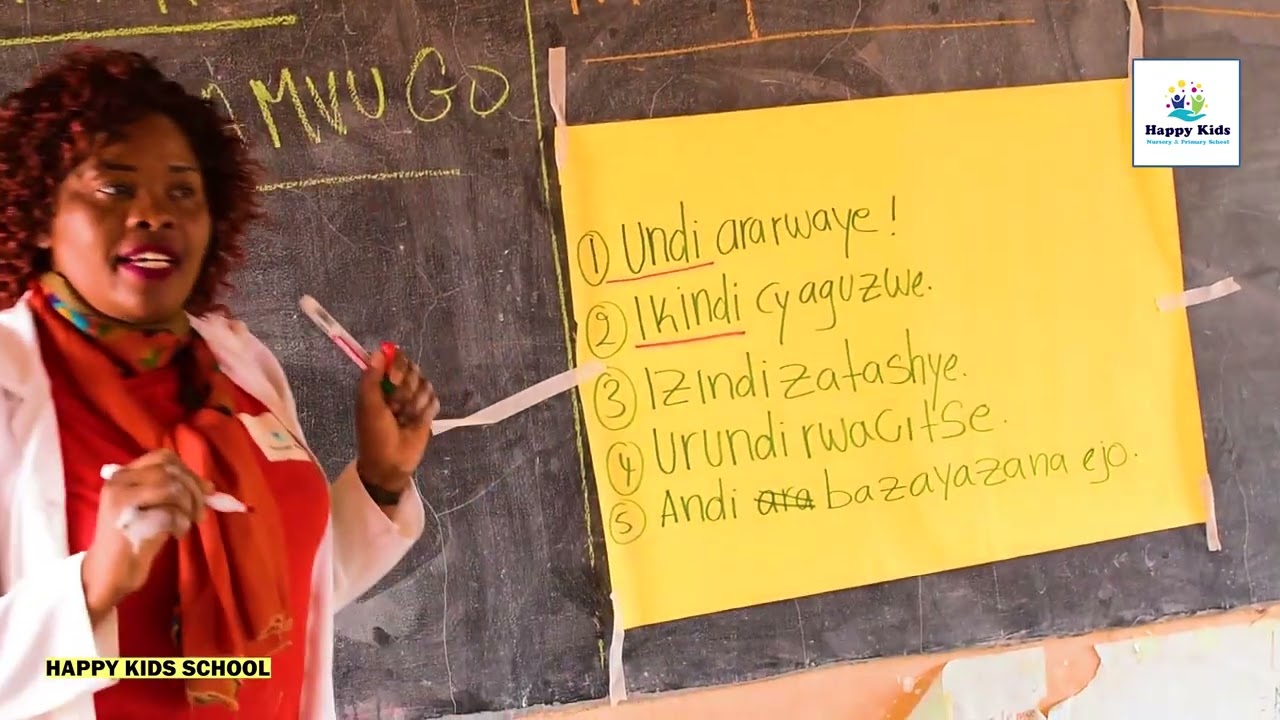 AMVUGO
Happy Kids
Nursery & Primary School
① Undi ararwaye!
② Ikindi cyaguzwe.
③ Izindi zatashye.
④ Urundi rwacitse.
⑤ Andi ara bazayazana ejo.
HAPPY KIDS SCHOOL